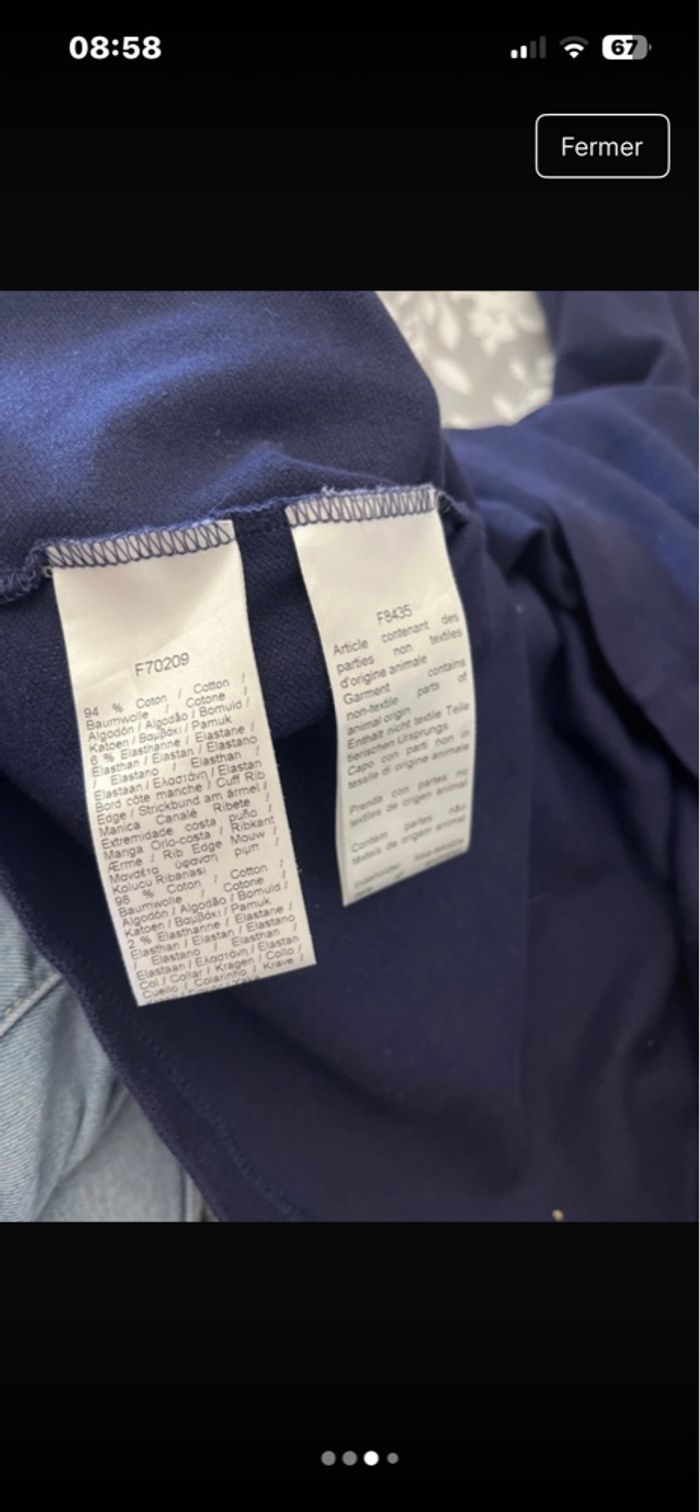 08:58
67
Fermer
F70209
94 % Coton / Cotton /
Baumwolle / Cotone /
Algodón / Algodão / Bomuld /
Katoen / Βαμβάκι / Pamuk
6 % Elasthanne / Elastane /
Elasthan / Elastan / Elastano
/ Elastano / Elasthan /
Elastaan / Ελαστάνη / Elastan
Bord côte manche / Cuff Rib
Edge / Strickbund am ärmel /
Manica Canalé Ribete /
Extremidade costa puño /
Manga Orlo-costa / Ribkant
Ærme / Rib Edge Mouw /
Μανσέτα ύφανση ριμπ /
Kolucu Ribanası
98 % Coton / Cotton /
Baumwolle / Cotone /
Algodón / Algodão / Bomuld /
Katoen / Βαμβάκι / Pamuk
2 % Elasthanne / Elastane /
Elasthan / Elastan / Elastano
/ Elastano / Elasthan /
Elastaan / Ελαστάνη / Elastan
Col / Collar / Kragen / Collo /
Cuello / Colarinho / Krave /
F8435
Article contenant des
parties non textiles
d'origine animale
Garment contains
non-textile parts of
animal origin
Enthält nicht textile Teile
tierischen Ursprungs
Capo con parti non in
tessile di origine animale
Prenda con partes no
textiles de origen animal
Contém partes não
têxteis de origem animal